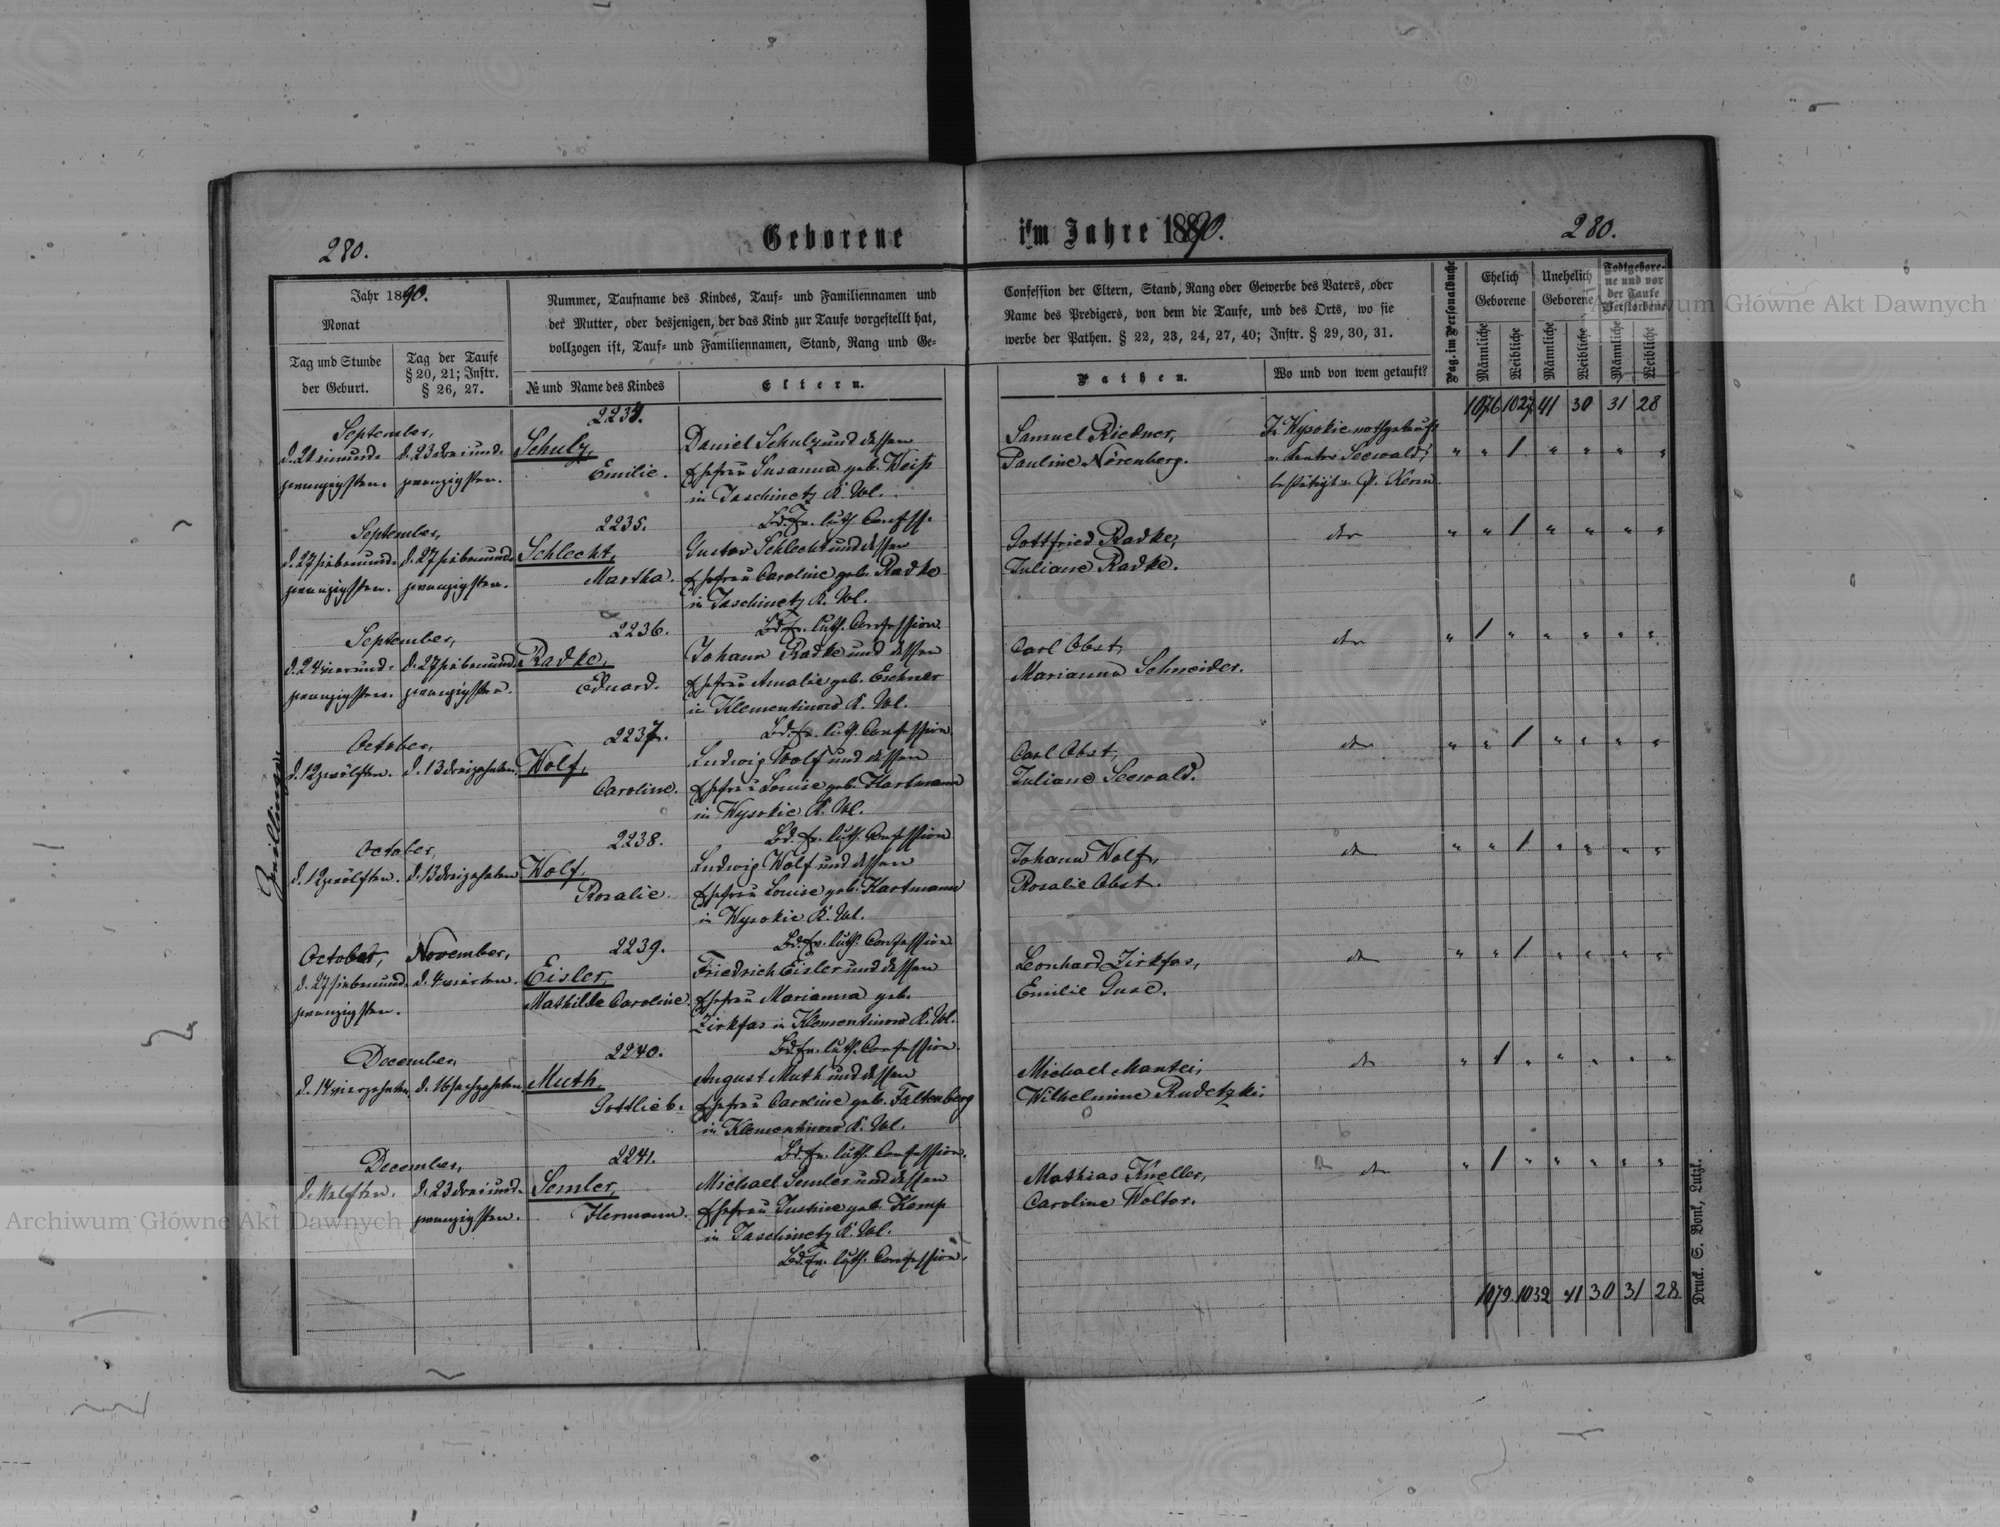 280.
Geborene
im Jahre 1890.
280.
Jahr 1890.
Monat
Tag und Stunde
der Geburt.
Tag der Taufe
§ 20, 21; Instr.
§ 26, 27.
Nummer, Taufname des Kindes, Tauf- und Familiennamen und
der Mutter, oder desjenigen, der das Kind zur Taufe vorgestellt hat,
vollzogen ist, Tauf- und Familiennamen, Stand, Rang und Ge-
№ und Name des Kindes
Eltern.
Confession der Eltern, Stand, Rang oder Gewerbe des Vaters, oder
Name des Predigers, von dem die Taufe, und des Orts, wo sie
werbe der Pathen. § 22, 23, 24, 27, 40; Instr. § 29, 30, 31.
Pathen.
Wo und von wem getauft?
Pag. im Personalbuche
Ehelich
Geborene
Unehelich
Geborene
Todtgebore-
ne und vor
der Taufe
Verstorbene
Männliche
Weibliche
Männliche
Weibliche
Männliche
Weibliche
1076 1027 41 30 31 28
2234.
September,
d. 21 einund-
zwanzigsten.
d. 23 dreiund-
zwanzigsten.
Schulz,
Emilie.
Daniel Schulz und dessen
Ehefrau Susanna geb. Weiß
in Jaschinetz K. Wl.
Bd. Ev. luth. Confess.
Samuel Riedner,
Pauline Nörenberg.
In Wysokie nothgetauft
v. Kantor Seewald,
bestätigt v. P. Kerm
" " 1 " " " "
2235.
September,
d. 27 siebenund-
zwanzigsten.
d. 27 siebenund-
zwanzigsten.
Schlecht,
Martha.
Gustav Schlecht und dessen
Ehefrau Caroline geb. Radke
in Jaschinetz K. Wl.
Bd. Ev. luth. Confession.
Gottfried Radke,
Juliane Radke.
dto
" " 1 " " " "
2236.
September,
d. 24 vierund-
zwanzigsten.
d. 27 siebenund-
zwanzigsten.
Radke,
Eduard.
Johann Radke und dessen
Ehefrau Amalie geb. Eschner
in Klementinow K. Wl.
Bd. Ev. luth. Confession.
Carl Obst,
Marianna Schneider.
dto
" 1 " " " " "
2237.
October,
d. 12 zwölften.
d. 13 dreizehnten.
Wolf,
Caroline.
Ludwig Wolf und dessen
Ehefrau Louise geb. Hartmann
in Wysokie K. Wl.
Bd. Ev. luth. Confession
Carl Obst,
Juliane Seewald.
dto
" " 1 " " " "
Zwillinge
2238.
October,
d. 12 zwölften.
d. 13 dreizehnten
Wolf,
Rosalie.
Ludwig Wolf und dessen
Ehefrau Louise geb. Hartmann
in Wysokie K. Wl.
Bd. Ev. luth. Confession
Johann Wolf,
Rosalie Obst.
dto
" " 1 " " " "
2239.
October,
d. 27 siebenund-
zwanzigsten.
November,
d. 4 vierten.
Eisler,
Mathilde Caroline.
Friedrich Eisler und dessen
Ehefrau Marianna geb.
Zirkfas in Klementinow K. Wl.
Bd. Ev. luth. Confession.
Leonhard Zirkfas,
Emilie Guse.
dto
" " 1 " " " "
2240.
December,
d. 14 vierzehnten
d. 16 sechzehnten
Muth,
Gottlieb.
August Muth und dessen
Ehefrau Caroline geb. Faltenberg
in Klementinow K. Wl.
Bd. Ev. luth. Confession.
Michael Mantei,
Wilhelmine Rudetzki.
dto
" 1 " " " " "
2241.
December,
d. 11 elften.
d. 23 dreiund-
zwanzigsten.
Semler,
Hermann.
Michael Semler und dessen
Ehefrau Justine geb. Kemp
in Jaschinetz K. Wl.
Bd. Ev. luth. Confession.
Mathias Kneller,
Caroline Wolter.
dto
" 1 " " " " "
1079 1032 41 30 31 28
Druck. S. Bonk, Lutzk.
Archiwum Główne Akt Dawnych
Archiwum Główne Akt Dawnych